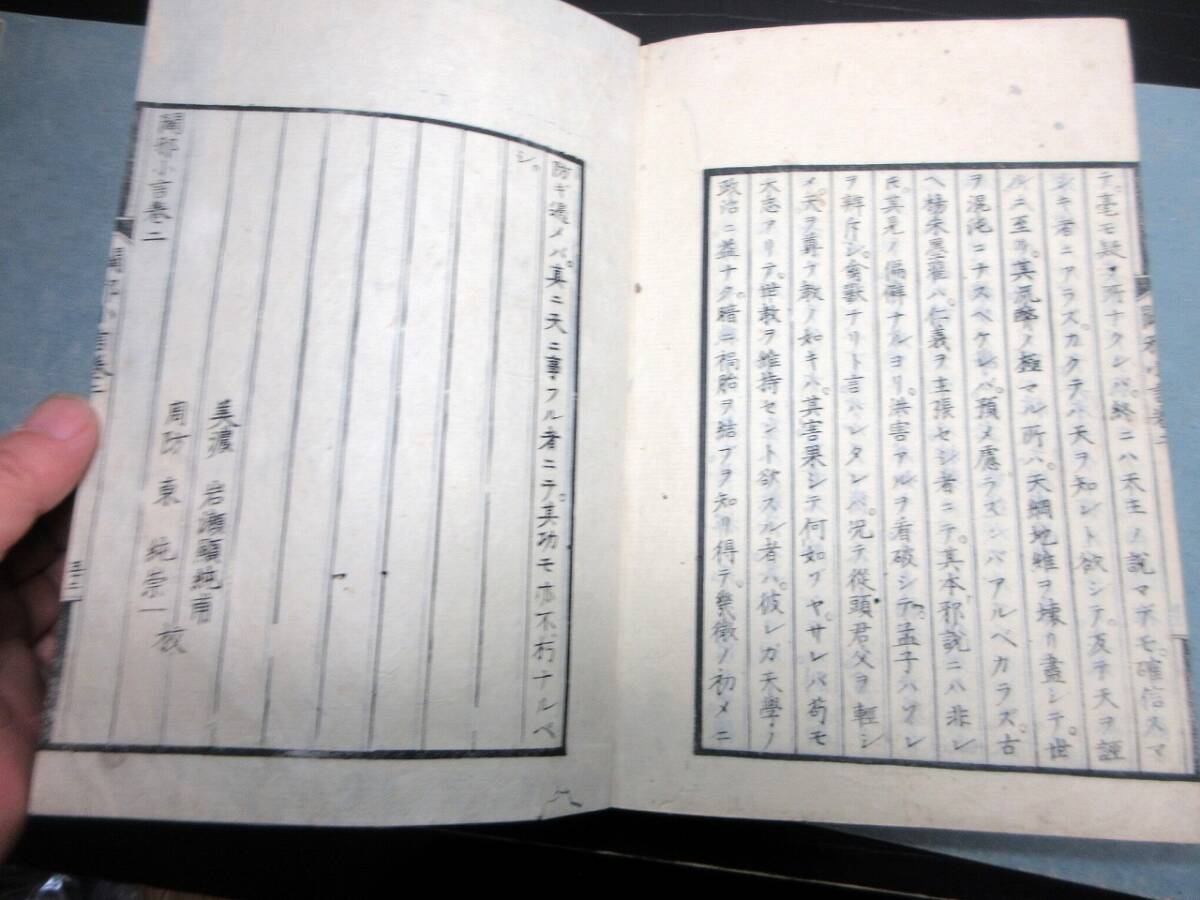 テ。毫モ疑フ所ナクンバ。終ニハ天主ノ説マデモ。確信スマ
ジキ者ニアラズ。カクテハ天ヲ知ント欲シテ。反テ天ヲ誣
ルニ至リ。其汎濫ノ極マル所ハ。天綱地維ヲ壊リ盡シテ。世
ヲ混沌ニナスベケレバ。預メ慮ラズンバアルベカラズ。古
ヘ楊朱墨翟ハ。仁義ヲ主張セシ者ニテ。其本邪説ニハ非レ
𪜈。其見ノ偏僻ナルヨリ。洪害アルヲ看破シテ。孟子ハソレ
ヲ辯斥シ。禽獸ナリト言ハレタレバ。况テ從頭君父ヲ輕シ
メ。天ヲ尊ブ教ノ如キハ。其害果シテ何如ゾヤ。サレバ苟モ
大志アリテ。世教ヲ維持セント欲スル者ハ。彼レガ天學ノ
政治ニ益ナク。暗ニ禍胎ヲ結ブヲ知リ得テ。幾微ノ初メニ
防ギ遏メバ。真ニ天ニ事フル者ニテ。其功モ亦不朽ナルベ
シ。
美濃 岩瀬顯純甫
周防 東 純崇一 校
闢邪小言卷二
闢邪小言卷二